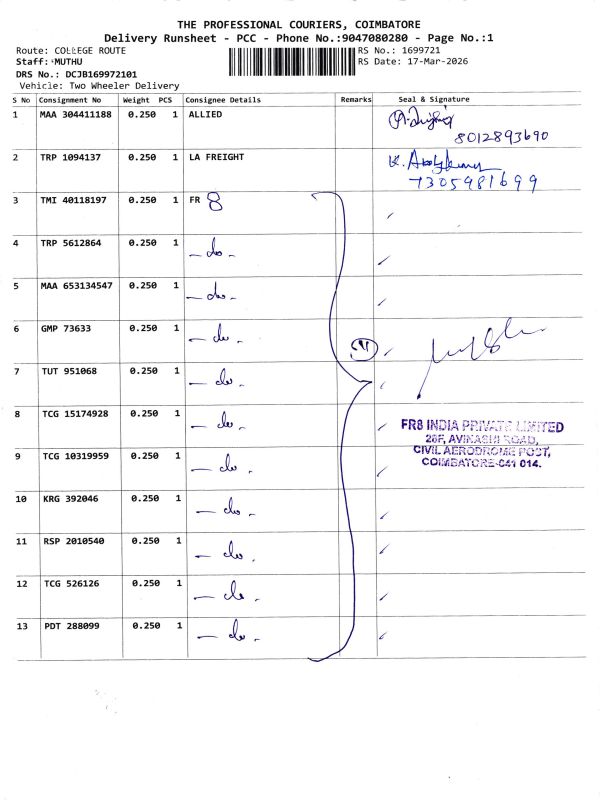 THE PROFESSIONAL COURIERS, COIMBATORE
Delivery Runsheet - PCC - Phone No.:9047080280 - Page No.:1
Route: COLLEGE ROUTE RS No.: 1699721
Staff: MUTHU RS Date: 17-Mar-2026
DRS No.: DCJB169972101
Vehicle: Two Wheeler Delivery
S No Consignment No Weight PCS Consignee Details Remarks Seal & Signature
1 MAA 304411188 0.250 1 ALLIED
8012893690
2 TRP 1094137 0.250 1 LA FREIGHT
7305981699
3 TMI 40118197 0.250 1 FR 8
4 TRP 5612864 0.250 1 - do -
5 MAA 653134547 0.250 1 - do -
6 GMP 73633 0.250 1 - do -
7 TUT 951068 0.250 1 - do -
8 TCG 15174928 0.250 1 - do -
FR8 INDIA PRIVATE LIMITED
26F, AVINASHI ROAD,
9 TCG 10319959 0.250 1 - do -
CIVIL AERODROME POST,
COIMBATORE-641 014.
10 KRG 392046 0.250 1 - do -
11 RSP 2010540 0.250 1 - do -
12 TCG 526126 0.250 1 - do -
13 PDT 288099 0.250 1 - do -